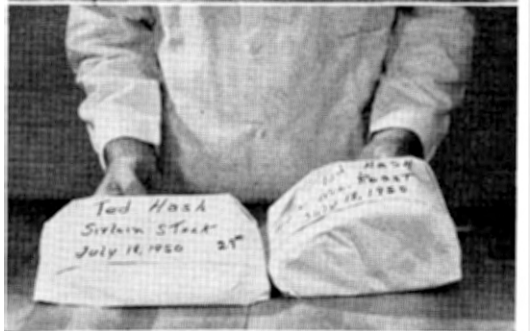 Ted Hash
Sirloin Steak
July 18, 1950
Ted Hash
Roast
July 18, 1950